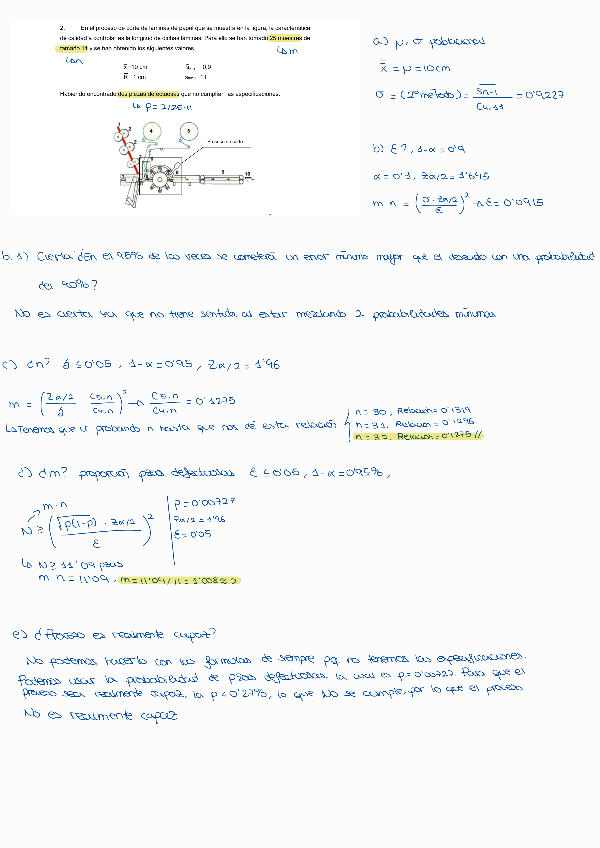 2. En el proceso de corte de láminas de papel que se muestra en la figura, la característica
de calidad a controlar es la longitud de dichas láminas. Para ello se han tomado 25 muestras de
tamaño 11 y se han obtenido los siguientes valores
↳n
↳m
x̿ = 10 cm
R̄ = 1 cm
Habiendo encontrado dos piezas defectuosas que no cumplían las especificaciones.
↳ P = 2/25·11
1
2
2
3
4
5
6
9
10
a) μ, σ poblacional
x̿ = μ = 10 cm
σ = (2º método) = Sn-1 / C4,11 = 0'9227
b) ε?, 1-α = 0'9
α = 0'1, Zα/2 = 1'645
m·n = (σ·Zα/2 / ε)² → ε = 0'0915
b.1) Cierta ¿En el 95% de las veces se cometerá un error mínimo mayor que el deseado con una probabilidad
del 90%?
No es cierta ya que no tiene sentido al estar mezclando 2 probabilidades mínimas
c) ¿n? g ≤ 0'05, 1-α = 0'95, Zα/2 = 1'96
m = (Zα/2 / g · C5,n / C4,n)² → C5,n / C4,n = 0'1275
↳ Tenemos que ir probando n hasta que nos dé esta relación
n = 30, Relación = 0'1319
n = 31, Relación = 0'1296
n = 32, Relación = 0'1275 //
d) ¿m? proporción pzas defectuosas ε ≤ 0'05, 1-α = 0'95%,
m·n
N ≥ (√p(1-p) · Zα/2 / ε)²
P = 0'00727
Zα/2 = 1'96
ε = 0'05
↳ N ≥ 11'09 pzas
m·n = 11'09, m = 11'09/11 = 1'008 ≈ 2
e) ¿Proceso es realmente capaz?
No podemos hacerlo con las fórmulas de siempre pq no tenemos las especificaciones.
Podemos usar la probabilidad de pzas defectuosas, la cual es p = 0'00727. Para que el
proceso sea realmente capaz, la p < 0'27%, lo que NO se cumple, por lo que el proceso
No es realmente capaz